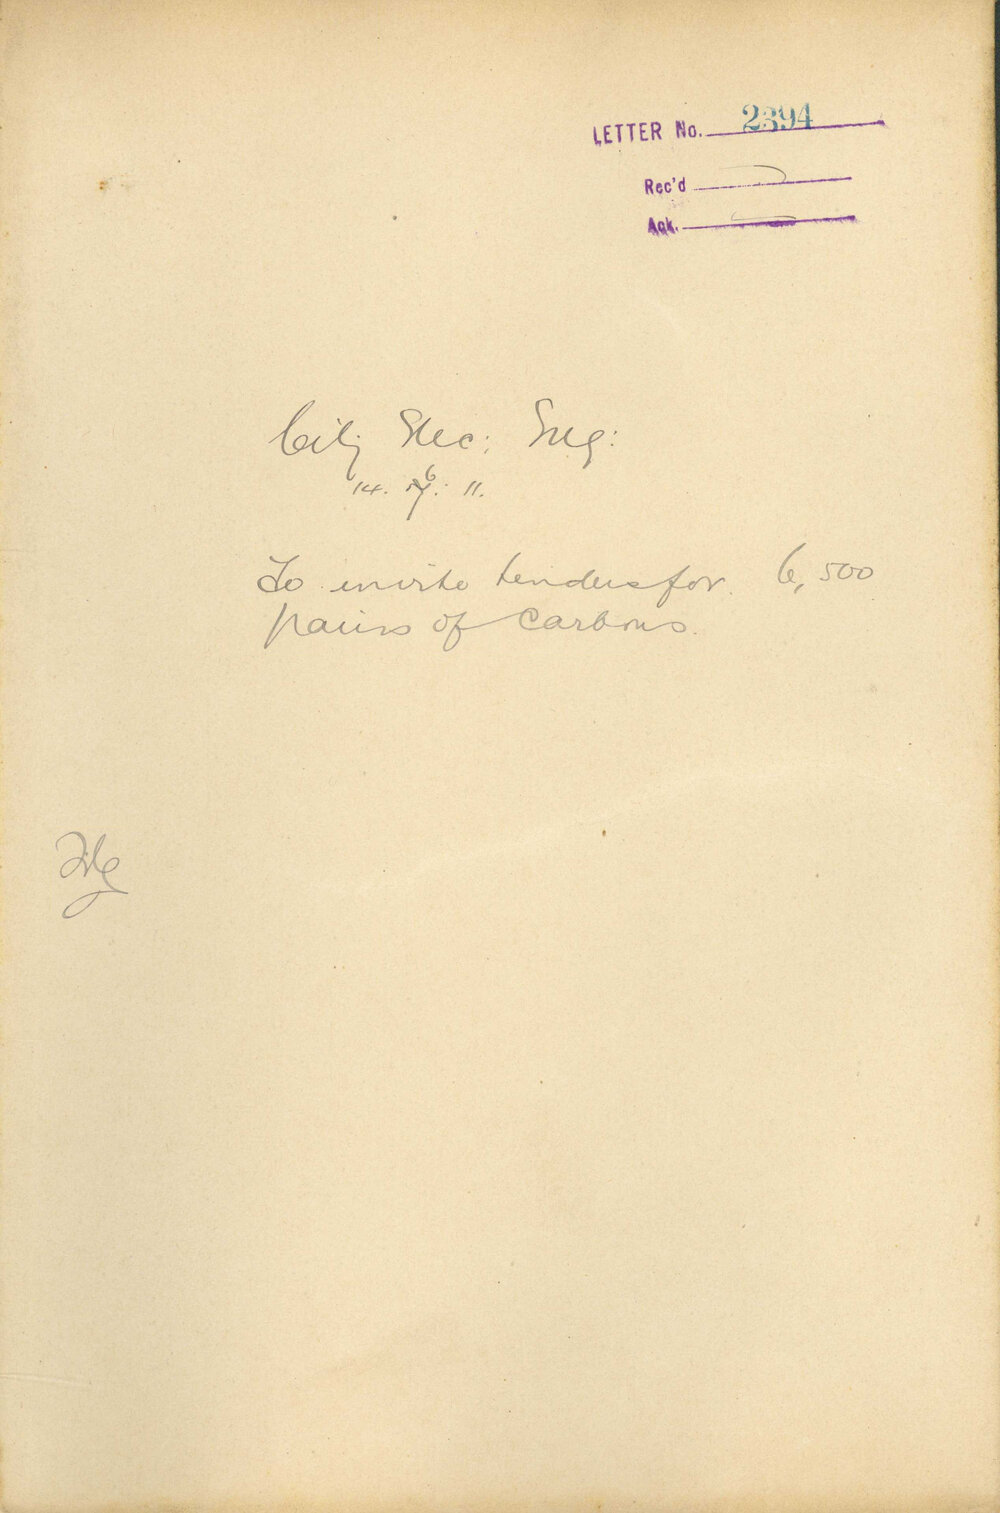 LETTER No. 2394
Rec'd
Ack.
City Elec: Eng:
14. 6. 11.
To invite tenders for 6,500
pairs of Carbons.
File